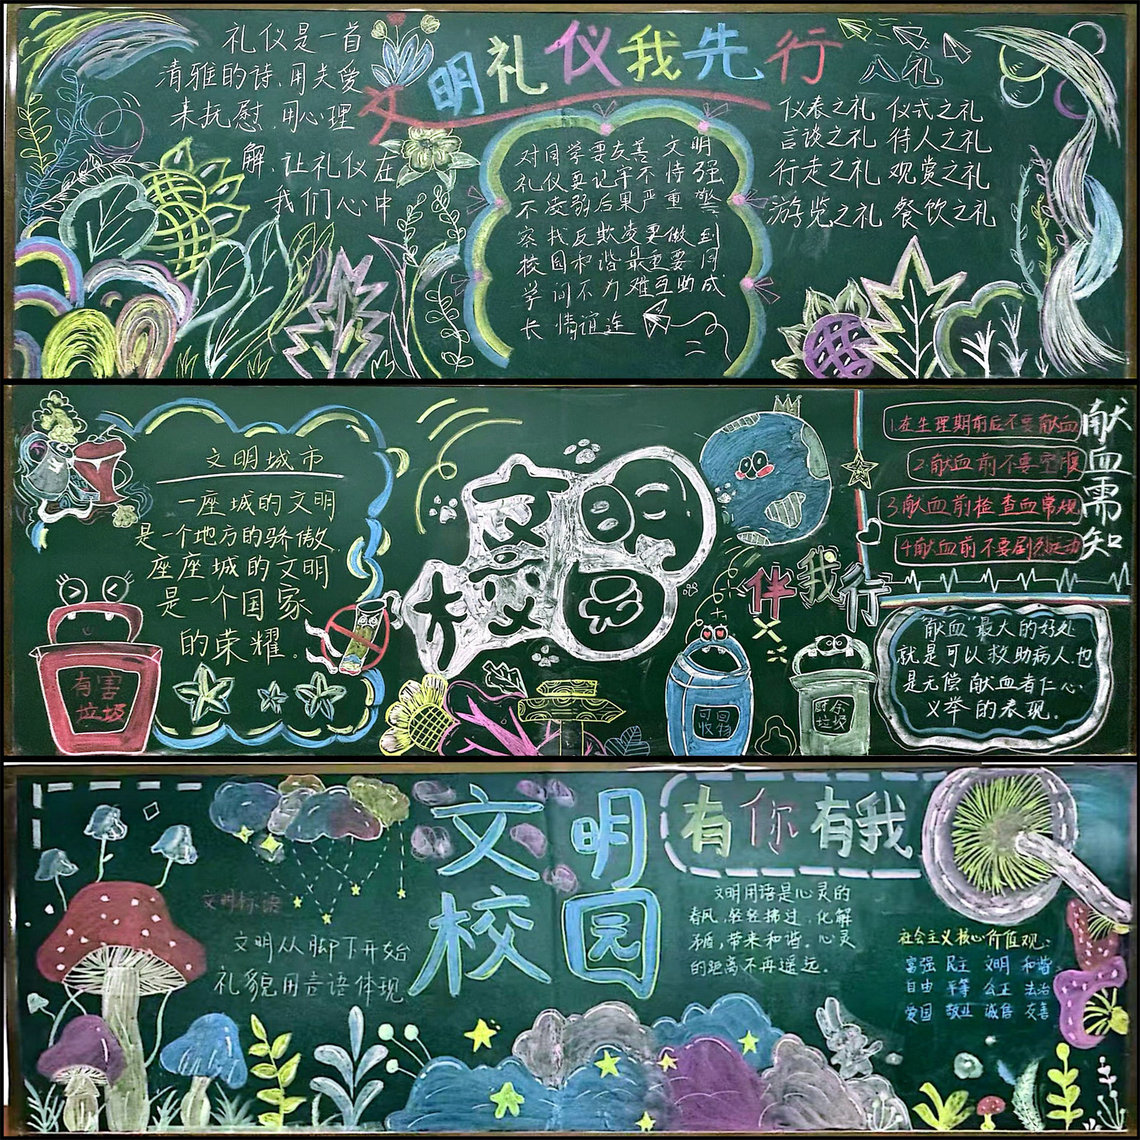 文明礼仪我先行
礼仪是一首
清雅的诗,用关爱
来抚慰,用心理
解,让礼仪在
我们心中
对同学要友善 文明
礼仪要记牢不恃强
不凌弱后果严重警
察找反欺凌要做到
校园和谐最重要同
学间不为难互助成
长 情谊连
八礼
仪表之礼 仪式之礼
言谈之礼 待人之礼
行走之礼 观赏之礼
游览之礼 餐饮之礼
文明城市
一座城的文明
是一个地方的骄傲
座座城的文明
是一个国家
的荣耀。
有害
垃圾
文明
校园
伴我行
可回
收物
厨余
垃圾
献血需知
1.在生理期前后不要献血
2.献血前不要空腹
3.献血前检查血常规
4.献血前不要剧烈运动
"献血"最大的好处
就是可以救助病人也
是无偿献血者仁心
义举的表现。
文明
校园
有你有我
文明标语
文明从脚下开始
礼貌用言语体现
文明用语是心灵的
春风,轻轻拂过,化解
矛盾,带来和谐。心灵
的距离不再遥远。
社会主义核心价值观:
富强 民主 文明 和谐
自由 平等 公正 法治
爱国 敬业 诚信 友善